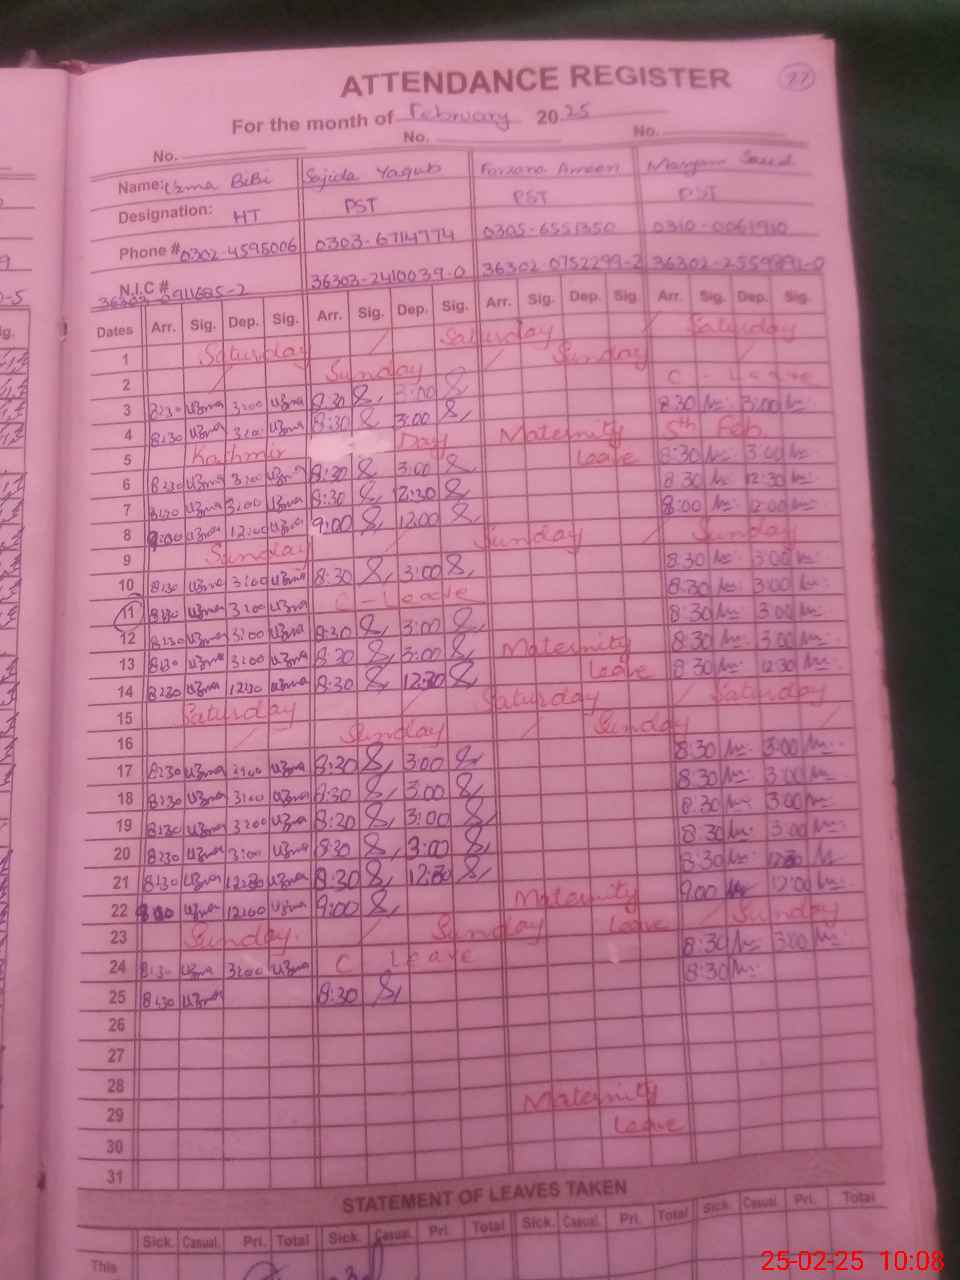 ATTENDANCE REGISTER 77
For the month of February 2025
No. No. No.
Name: Uzma BiBi Sajida Yaqub Farzana Ameen Maryam Saeed
Designation: HT PST PST PST
Phone # 0302-4595006 0303-6714774 0305-6551350 0310-0061910
N.I.C # 36303-2410039-0 36302 0752299-2 36302-2559891-0
Dates Arr. Sig. Dep. Sig. Arr. Sig. Dep. Sig. Arr. Sig. Dep. Sig. Arr. Sig. Dep. Sig.
1 Saturday Saturday Saturday
2 Sunday Sunday C-Leave
3 8:30 Uzma 3:00 Uzma 8:30 3:00 8:30 3:00
4 8:30 Uzma 3:00 Uzma 8:30 3:00 Maternity 5th Feb
5 Kashmir Day Leave 8:30 3:00
6 8:30 Uzma 3:00 Uzma 8:30 3:00 8:30 12:30
7 8:30 Uzma 3:00 Uzma 8:30 12:30 8:00 12:00
8 9:00 Uzma 12:00 Uzma 9:00 12:00 Sunday Sunday
9 Sunday 8:30 3:00
10 8:30 Uzma 3:00 Uzma 8:30 3:00 8:30 3:00
11 8:30 Uzma 3:00 Uzma C-Leave 8:30 3:00
12 8:30 Uzma 3:00 Uzma 8:30 3:00 Maternity 8:30 3:00
13 8:30 Uzma 3:00 Uzma 8:30 3:00 Leave 8:30 12:30
14 8:30 Uzma 12:30 Uzma 8:30 12:30 Saturday Saturday
15 Saturday Sunday Sunday
16 8:30 3:00
17 8:30 Uzma 3:00 Uzma 8:30 3:00 8:30 3:00
18 8:30 Uzma 3:00 Uzma 8:30 3:00 8:30 3:00
19 8:30 Uzma 3:00 Uzma 8:30 3:00 8:30 3:00
20 8:30 Uzma 3:00 Uzma 8:30 3:00 8:30 12:30
21 8:30 Uzma 12:30 Uzma 8:30 12:30 Maternity 9:00 12:00
22 Uzma 12:00 Uzma 9:00 Leave Sunday
23 Sunday. Sunday 8:30 3:00
24 8:30 Uzma 3:00 Uzma C Leave 8:30
25 8:30 Uzma 8:30
26
27
28 Maternity
29 Leave
30
31
STATEMENT OF LEAVES TAKEN
Sick. Casual. Pri. Total Sick. Casual. Pri. Total Sick. Casual. Pri. Total Sick. Casual. Pri. Total
This
25-02-25 10:08